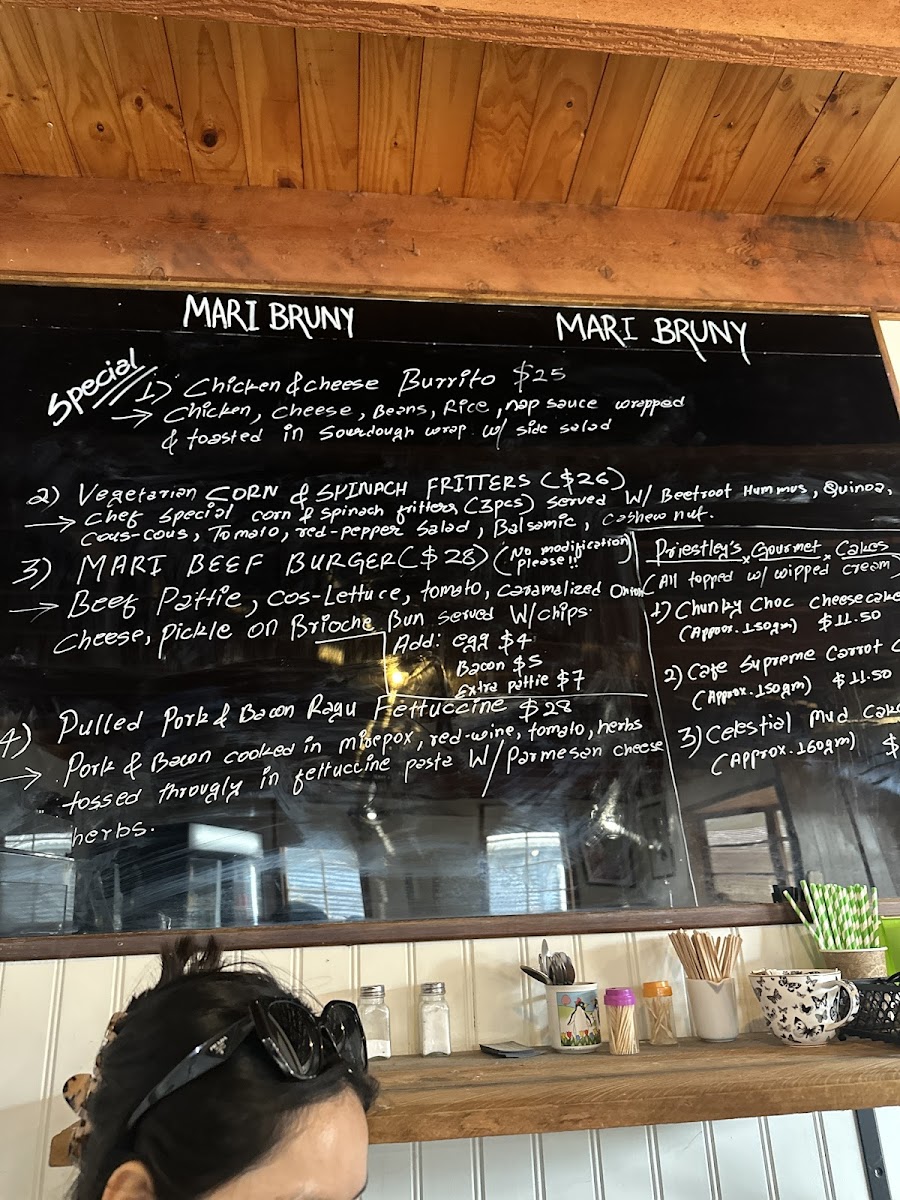 MARI BRUNY
MARI BRUNY
Special
1) Chicken & cheese Burrito $25
→ Chicken, cheese, Beans, Rice, nap sauce wrapped
& toasted in Sourdough wrap w/ side salad
2) Vegetarian CORN & SPINACH FRITTERS ($26)
→ Chef Special corn & spinach fritters (3pcs) served W/ Beetroot Hummus, Quinoa,
cous-cous, Tomato, red-pepper salad, Balsamic, cashew nut.
3) MARI BEEF BURGER ($28) (No modification
please!!)
→ Beef Pattie, cos-Lettuce, tomato, caramalized Onion
cheese, pickle on Brioche Bun served W/chips.
Add: egg $4
Bacon $5
Extra pattie $7
4) Pulled Pork & Bacon Ragu Fettuccine $28
→ Pork & Bacon cooked in mirepox, red-wine, tomato, herbs
tossed througly in fettuccine pasta W/ Parmesan cheese
herbs.
Priestley's Gourmet Cakes
(All topped w/ wipped cream
1) Chunky Choc cheesecake
(Approx. 150gm) $11.50
2) Cafe Supreme Carrot C
(Approx. 150gm) $11.50
3) Celestial Mud Cake
(Approx. 160gm) $
PRADA